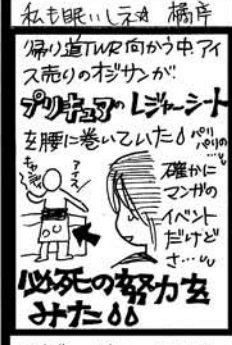 私も眠いしネ☆ 橘 岸
帰り道TWR向かう中、アイ
ス売りのオジサンが、
プリキュアのレジャーシート
を腰に巻いていた
パリ
パリの
…
アイス!
確かに
マンガの
イベント
だけど
さ…
必死の努力を
みた